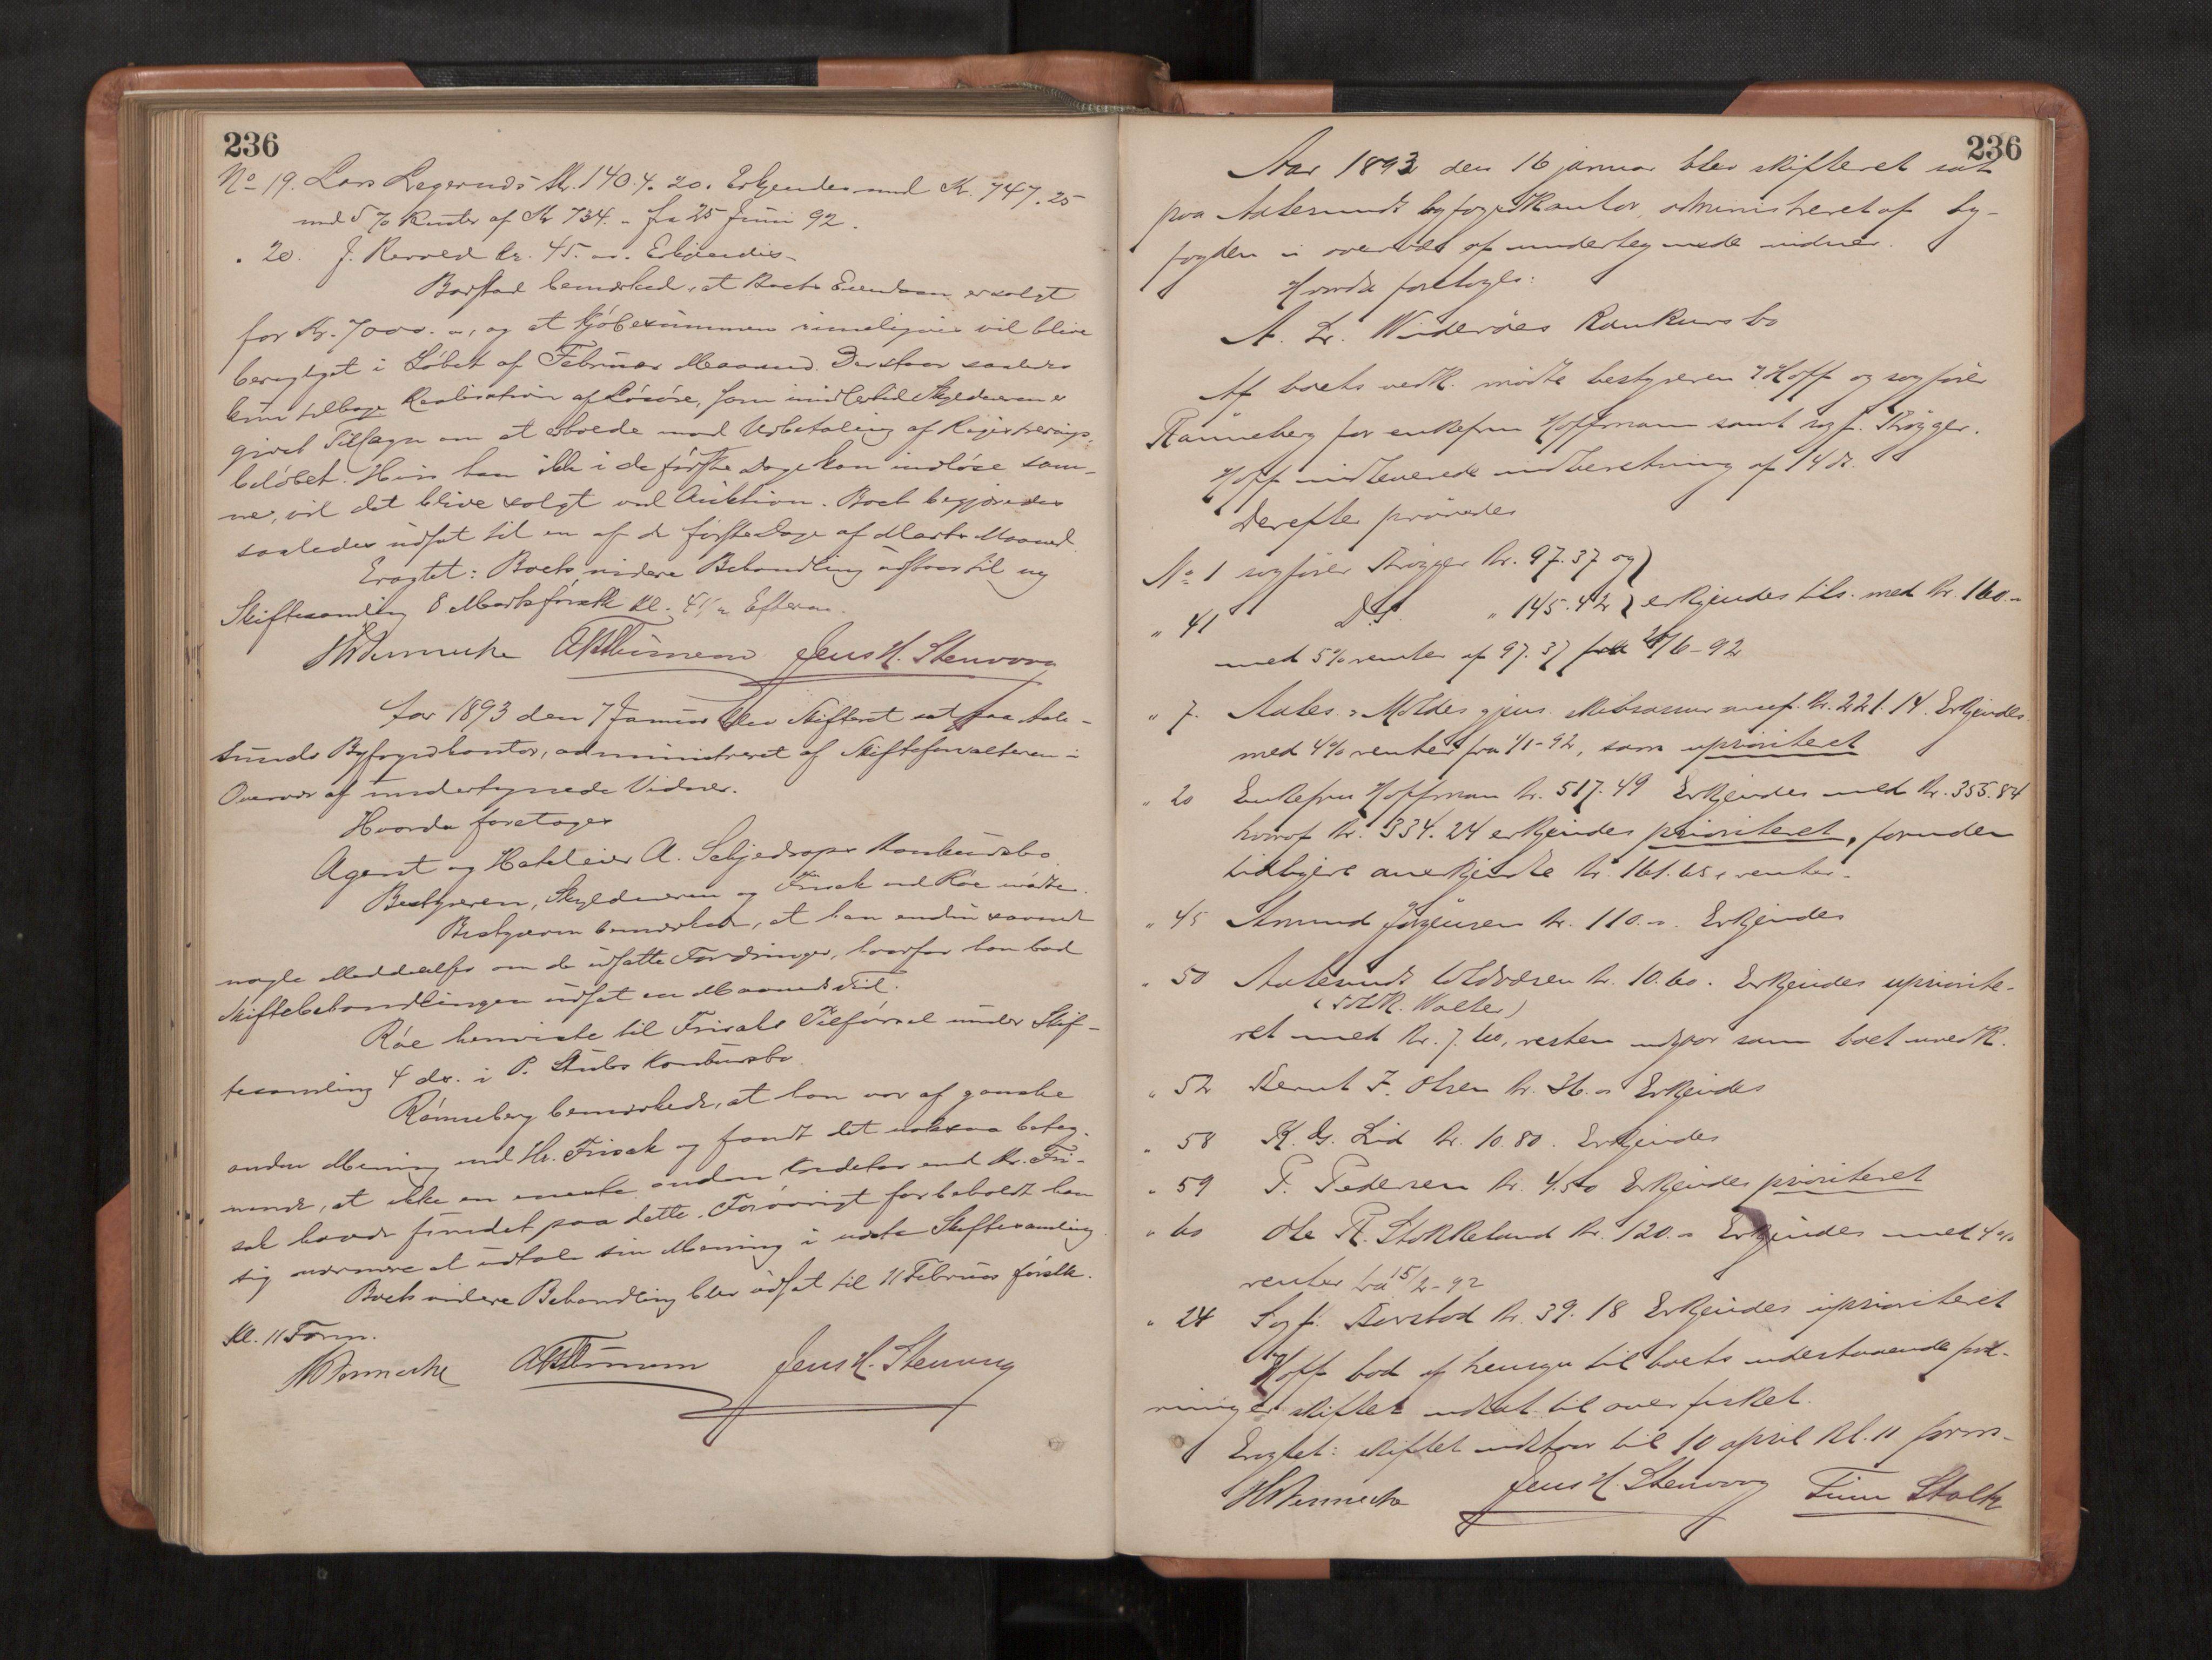 236
No 19. Lars Legernds Kr. 1404.20. Erkjendes med Kr. 747.25
med 5% Renter af Kr 734.- fra 25 Juni 92.
" 20. J. Kr. 45.-. Erkjendes.
Barstad bemærked, at Boets Eiendom er solgt
for Kr. 7000.-, og at Kjöbesummen rimeligvis vil blive
berigtiget i Löbet af Februar Maaned. Der staar saaledes
kun tilbage Realisation af Lösöre, som imidlertid Skyldneren er
givet Tilsagn om at erholde mod Udbetaling af Registrerings-
belöbet. Hvis han ikke i de förste Dage kan indlöse sam-
me, vil det blive solgt ved Auktion. Boet begjæredes
saaledes udsat til en af de förste Dage af Marts Maaned.
Eragtet: Boets videre Behandling udstaar til ny
Skiftesamling 8 Marts förstk. Kl. 4½ Efterm.
Jens H. Stenvorg
Aar 1893 den 7 Januar blev Skifteret sat paa Aale-
sunds Byfogedkontor, administreret af Skifteforvalteren i
Overvær af undertegnede Vidner.
Hvorda foretoges
Agent og Hoteleier A. Schjedrops Konkursbo.
Bestyreren, Skyldneren og Frisak ved Röe mödte.
Bestyreren bemærkede, at han endnu savned
nogle Meddelelser om de udsatte Fordringer, hvorfor han bad
Skiftebehandlingen udsat en Maaneds Tid.
Röe henviste til Frisaks Tilförsel under Skif-
tesamling 4 ds. i P. Stubs Konkursbo.
Rönneberg bemærkede, at han var af ganske
anden Mening end Hr. Frisak og fandt det ogsaa beteg-
nende, at ikke en eneste anden Kreditor end Hr. Fri-
sak havde fundet paa dette. Forövrigt forbeholdt han
sig nærmere at udtale sin Mening i næste Skiftesamling.
Boets videre Behandling blev udsat til 11 Februar förstk.
Kl. 11 Form.
Jens H. Stenvorg
236
Aar 1893 den 16 januar blev skifteret sat
paa Aalesunds byfogedkontor, administreret af by-
fogden i overvær af undertegnede vidner.
Hvorda foretoges:
A. Lr. Wideröes Konkursbo
Af boets vedk. mödte bestyreren Hoff og sagförer
Rønneberg for enkefru Hoffmann samt sagf. Krøgger.
Hoff indleverede indberetning af 14 ds.
Derefter prövedes
No 1 sagförer Krøgger Kr. 97.37 og }
" 41 Do. " 145.42 } erkjendes tils. med Kr. 160.-
med 5% renter af 97.37 fra /6-92
" 7. Aales. & Moldes gjens. skibsassur. Kr. 221.14. Erkjendes
med 4% renter fra 1/1-92, som uprioriteret
" 20 Enkefru Hoffman Kr. 517.49 Erkjendes med Kr. 355.84
hvoraf Kr. 334.24 erkjendes prioriteret, foruden
tidligere anerkjendte Kr. 161.65 & renter.
" 45 Amund Jörgensen Kr. 110.-. Erkjendes
" 50 Aalesunds toldvæsen Kr. 10.60. Erkjendes uprioirite-
(Walter)
ret med Kr. 7.60, resten udgaar som boet uvedk.
" 52 Bernt F. Olsen Kr. 36.- Erkjendes
" 58 K. G. Lid Kr. 10.80. Erkjendes
" 59 P. Pedersen Kr. 4.50 Erkjendes prioriteret
" 60 Ole R. Stokkeland Kr. 120.- Erkjendes med 4%
renter fra 15/2-92
" 24 Sagf. Barstad Kr. 39.18 Erkjendes uprioriteret
Hoff bad af hensyn til boets udestaaende ford-
ringer skiftet udsat til over fisket.
Eragtet: skiftet udstaar til 10 april Kl. 11 form.
Jens H. Stenvorg Finn Stoltz